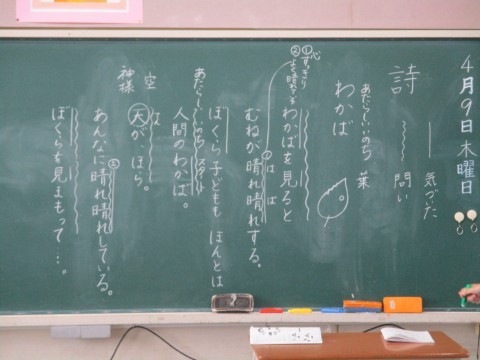 4月9日木曜日
詩
気づいた
問い
わかば
あたらしいいのち
葉
心
①すっきり
②よく晴れてる
わかばを見ると
むねが晴れ晴れする。
は ば
ぼくら子どもも ほんとは
人間のわかば。
あたらしいいのち スタート
空
神様
天が、ほら。
あんなに晴れ晴れしている。
ぼくらを見まもって…。